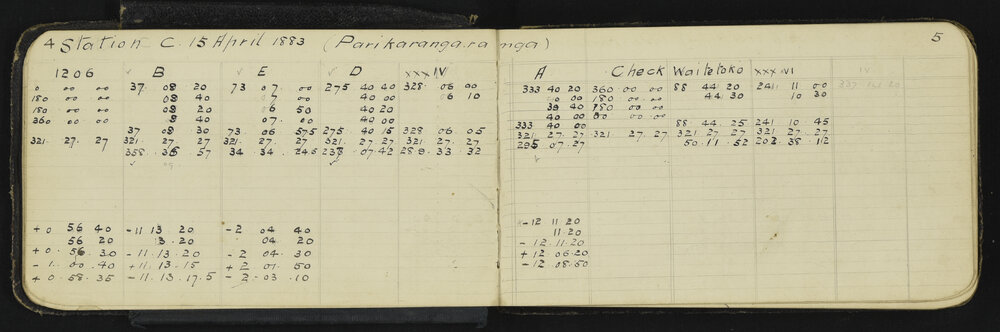 4 Station C. 15 April 1883 (Parikarangaranga) 5
1206 B E D XXXIV A Check Waitetoko XXXVI
0 00 00 37 08 20 73 07 00 275 40 40 328 06 00 333 40 20 360 00 00 88 44 20 241 11 00
180 00 00 08 40 07 00 40 00 6 10 00 00 180 00 00 44 30 10 30
180 00 00 08 20 06 50 40 20 39 40 180 00 00
360 00 00 8 40 07 00 40 00 40 00 00 00
37 08 30 73 06 57.5 275 40 15 328 06 05 333 40 00 88 44 25 241 10 45
321 27 27 321 27 27 321 27 27 321 27 27 321 27 27 321 27 27 321 27 27 321 27 27 321 27 27
358 35 57 34 34 24.5 237 07 42 289 33 32 295 07 27 50 11 52 202 38 12
+0 56 40 -11 13 20 -2 04 40 -12 11 20
56 20 3 20 04 20 11 20
+0 56 30 -11 13 20 -2 04 30 -12 11 20
-1 00 40 +11 13 15 +2 01 50 +12 06 20
+0 58 35 -11 13 17.5 -2 03 10 -12 08 50